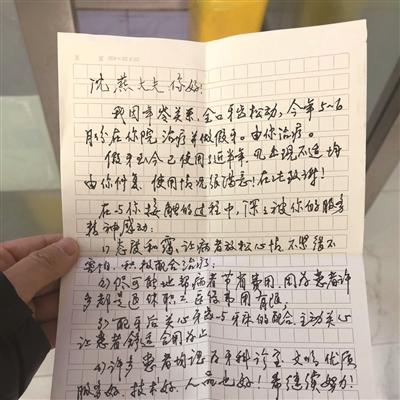 沈燕大夫你好!
我因年岁关系,全口牙齿松动,今年5~6
月份在你院治疗并做假牙。由你治疗。
假牙至今已使用近半年,见出现不适均
由你修复,使用情况很满意!在此致谢!
在与你接触的过程中,深深被你的服务
精神感动:
1)态度和蔼,让病者放松心情,不觉得不
害怕,积极配合治疗;
2)尽可能地帮病者节省费用,因为患者许
多都是退休职工经费有限;
3)配牙后关心牙齿与牙床的配合,主动关心
让患者舒适合用为止
4)许多患者均谓 牙科诊室 文明、优质
服务好、技术好、人品也好!希继续努力!